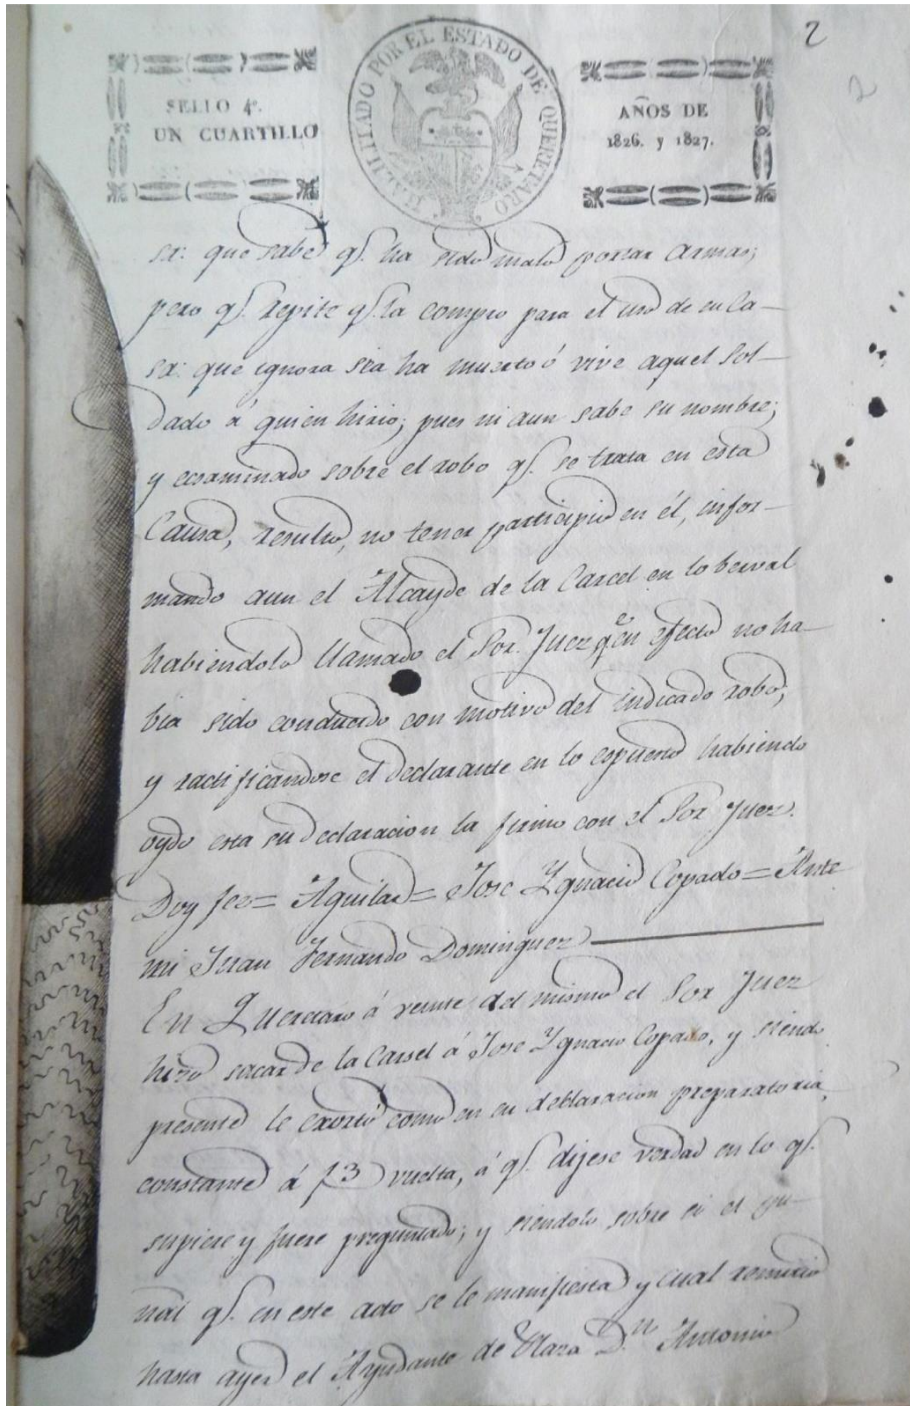 2
2
SELLO 4º.
UN CUARTILLO
HABILITADO POR EL ESTADO DE QUERETARO
AÑOS DE
1826. y 1827.
sa: que sabe qe. ha sido malo portar armas;
pero qe. repite qe. la compro para el uso de su Ca-
sa: que ignora si ha muerto ó vive aquel Sol-
dado á quien hirio; pues ni aun sabe su nombre;
y ecsaminado sobre el robo qe. se trata en esta
Causa, resultó, no tener participio en él, infor-
mando aun el Alcayde de la Carcel en lo berval
habiendolo llamado el Sor. Juez qe en efecto no ha-
bia sido conducido con motivo del indicado robo;
y ractificandose el declarante en lo espuesto habiendo
oydo esta su declaracion la firmo con el Sor Juez.
Doy fee = Aguilar = Jose Ygnacio Copado = Ante
mi Juan Fernando Dominguez
En Queretaro á veinte del mismo el Sor Juez
hizo sacar de la Carsel á Jose Ygnacio Copado, y siendo
presente le exortó como en su declaracion preparatoria,
constante á f 3 vuelta, á qe. dijese verdad en lo qe.
supiere y fuere preguntado; y siendolo sobre si el pu-
ñal qe. en este acto se le manifiesta y cual remitio
hasta ayer el Ayudante de Plaza Dn Antonio